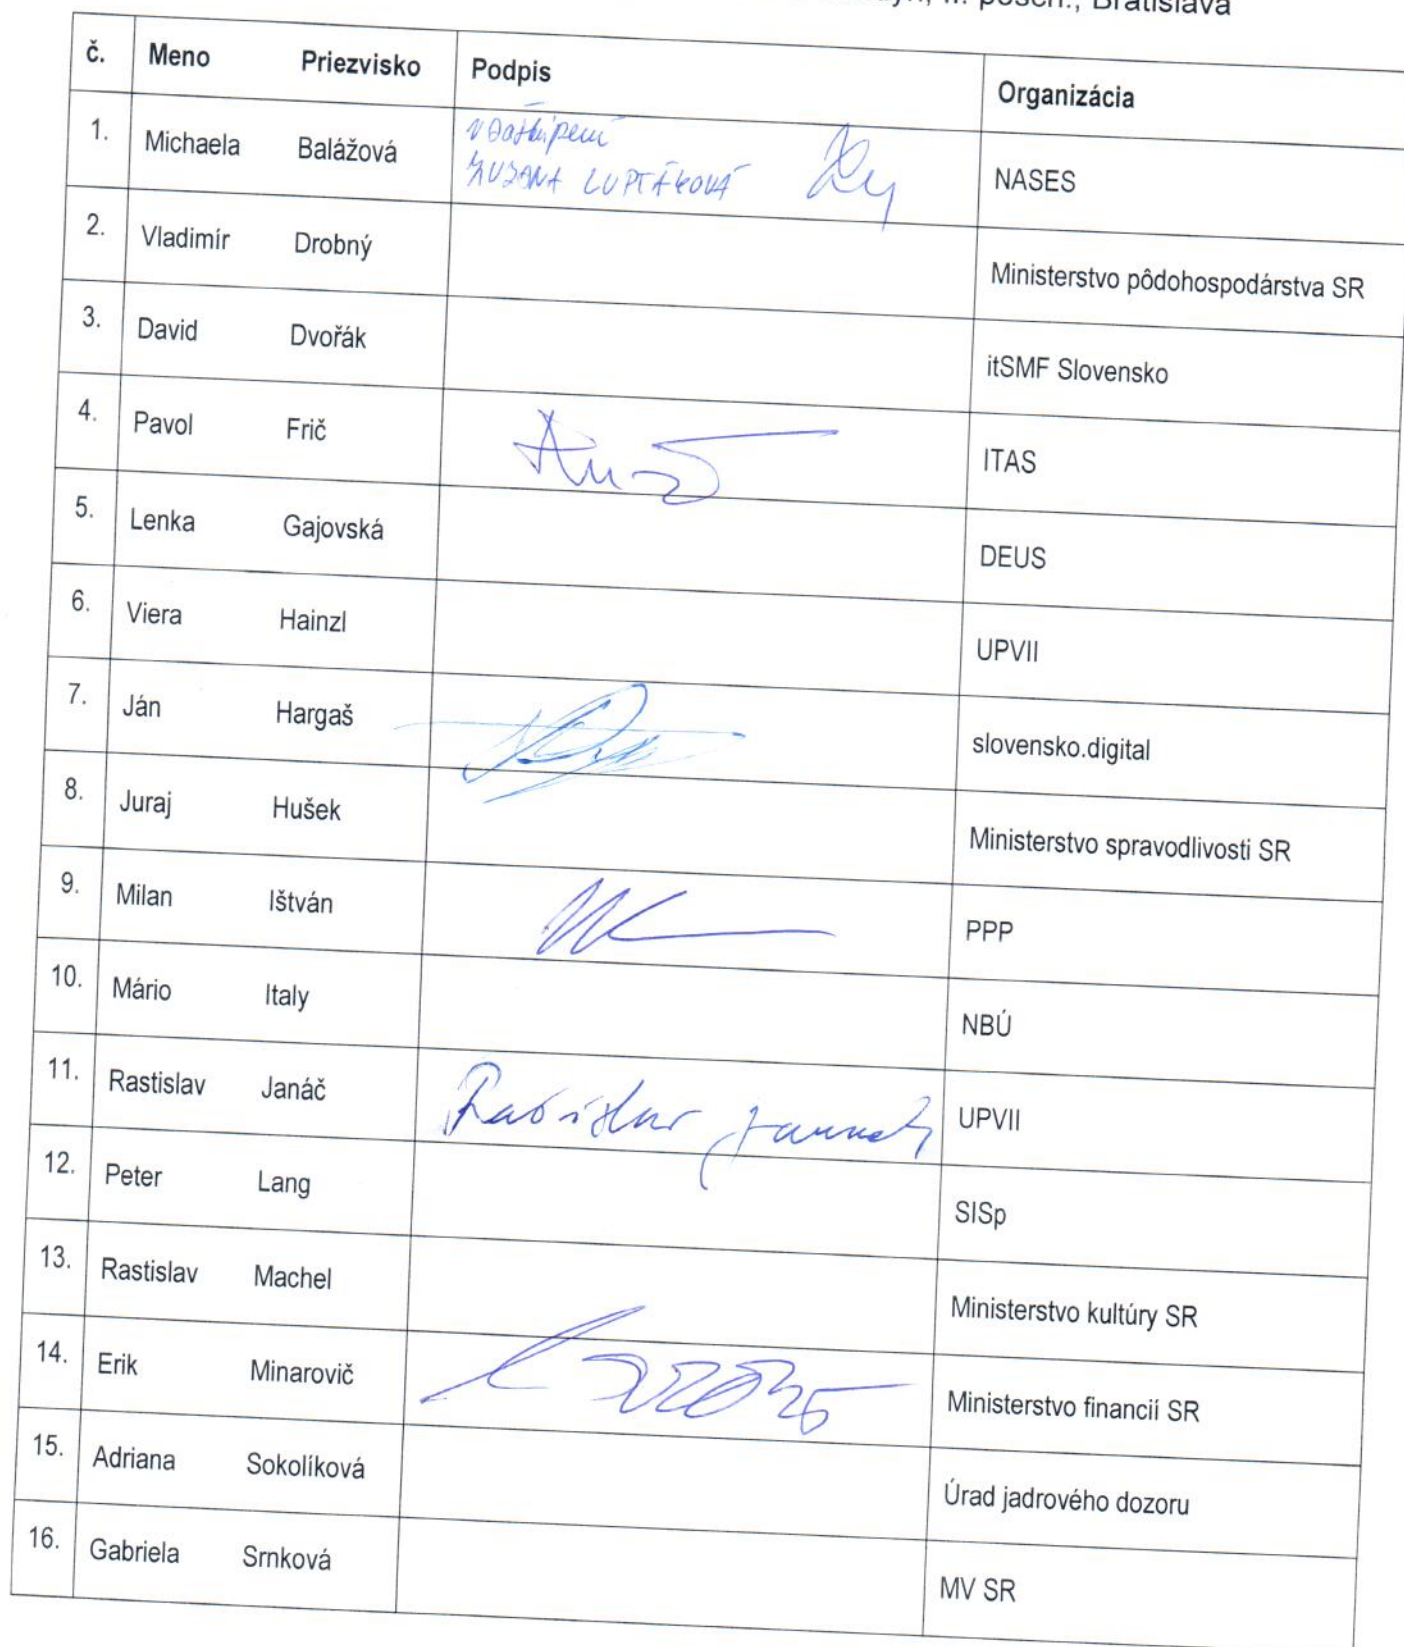 posch., Bratislava
č. Meno Priezvisko Podpis Organizácia
1. Michaela Balážová v zastúpení NASES
ZUZANA LUPTÁKOVÁ
2. Vladimír Drobný Ministerstvo pôdohospodárstva SR
3. David Dvořák itSMF Slovensko
4. Pavol Frič ITAS
5. Lenka Gajovská DEUS
6. Viera Hainzl UPVII
7. Ján Hargaš slovensko.digital
8. Juraj Hušek Ministerstvo spravodlivosti SR
9. Milan Ištván PPP
10. Mário Italy NBÚ
11. Rastislav Janáč Rastislav UPVII
12. Peter Lang SISp
13. Rastislav Machel Ministerstvo kultúry SR
14. Erik Minarovič Ministerstvo financií SR
15. Adriana Sokolíková Úrad jadrového dozoru
16. Gabriela Srnková MV SR